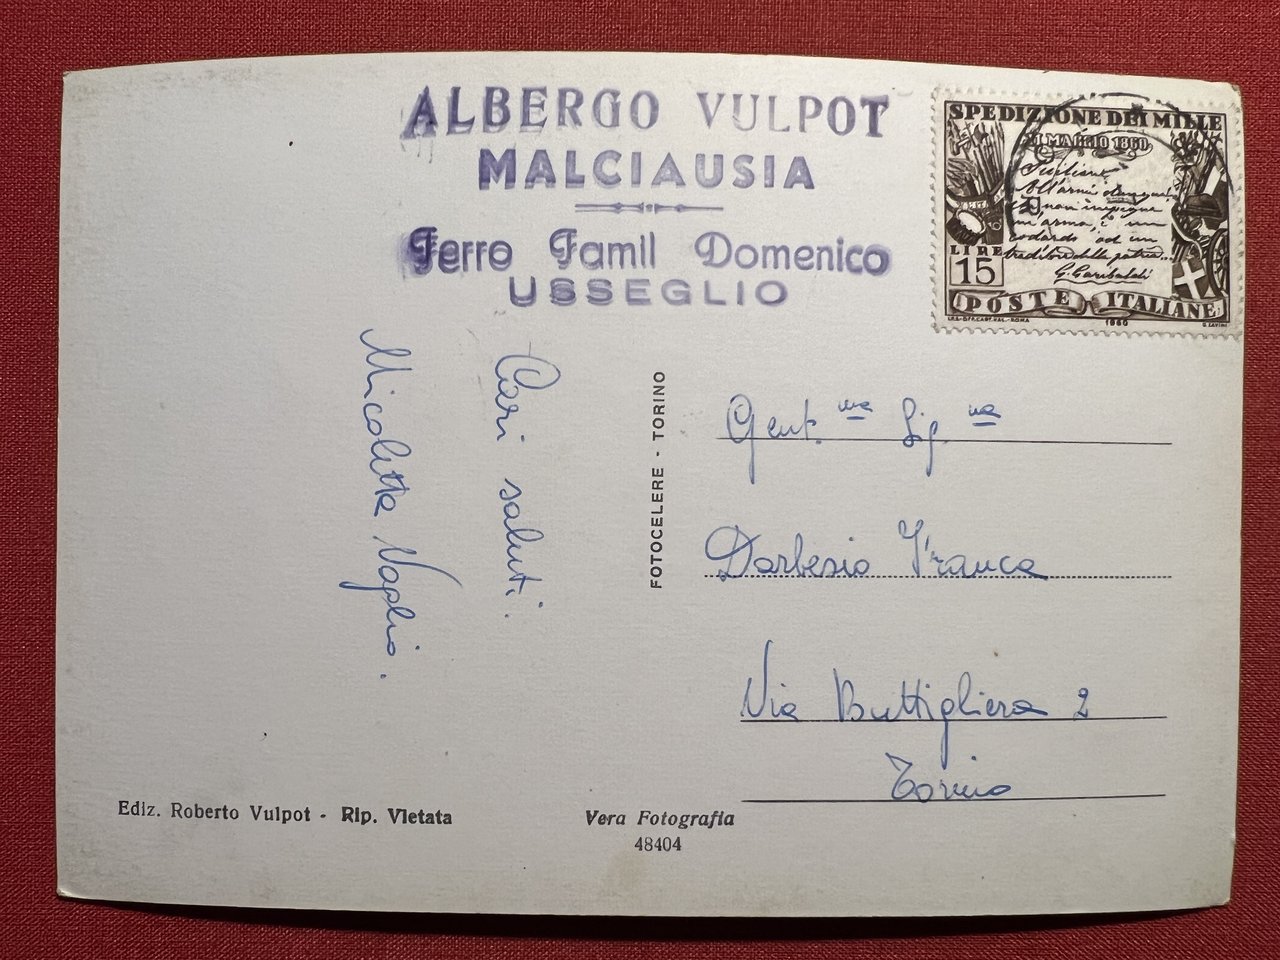 ALBERGO VULPOT
MALCIAUSIA
Ferro Famil Domenico
USSEGLIO
SPEDIZIONE DEI MILLE
11 MAGGIO 1860
Siciliani
All'armi dunque!
Chi non impugna
un'arma, è un
codardo od un
traditore della patria...
G. Garibaldi
LIRE
15
POSTE ITALIANE
I.P.S.-OFF.CART.VAL.-ROMA 1960
Cari saluti.
Nicoletta Vaglio.
FOTOCELERE - TORINO
Gent.ma Sig.na
Darbesio Franca
Via Buttigliera 2
Torino
Ediz. Roberto Vulpot - Rip. Vietata
Vera Fotografia
48404